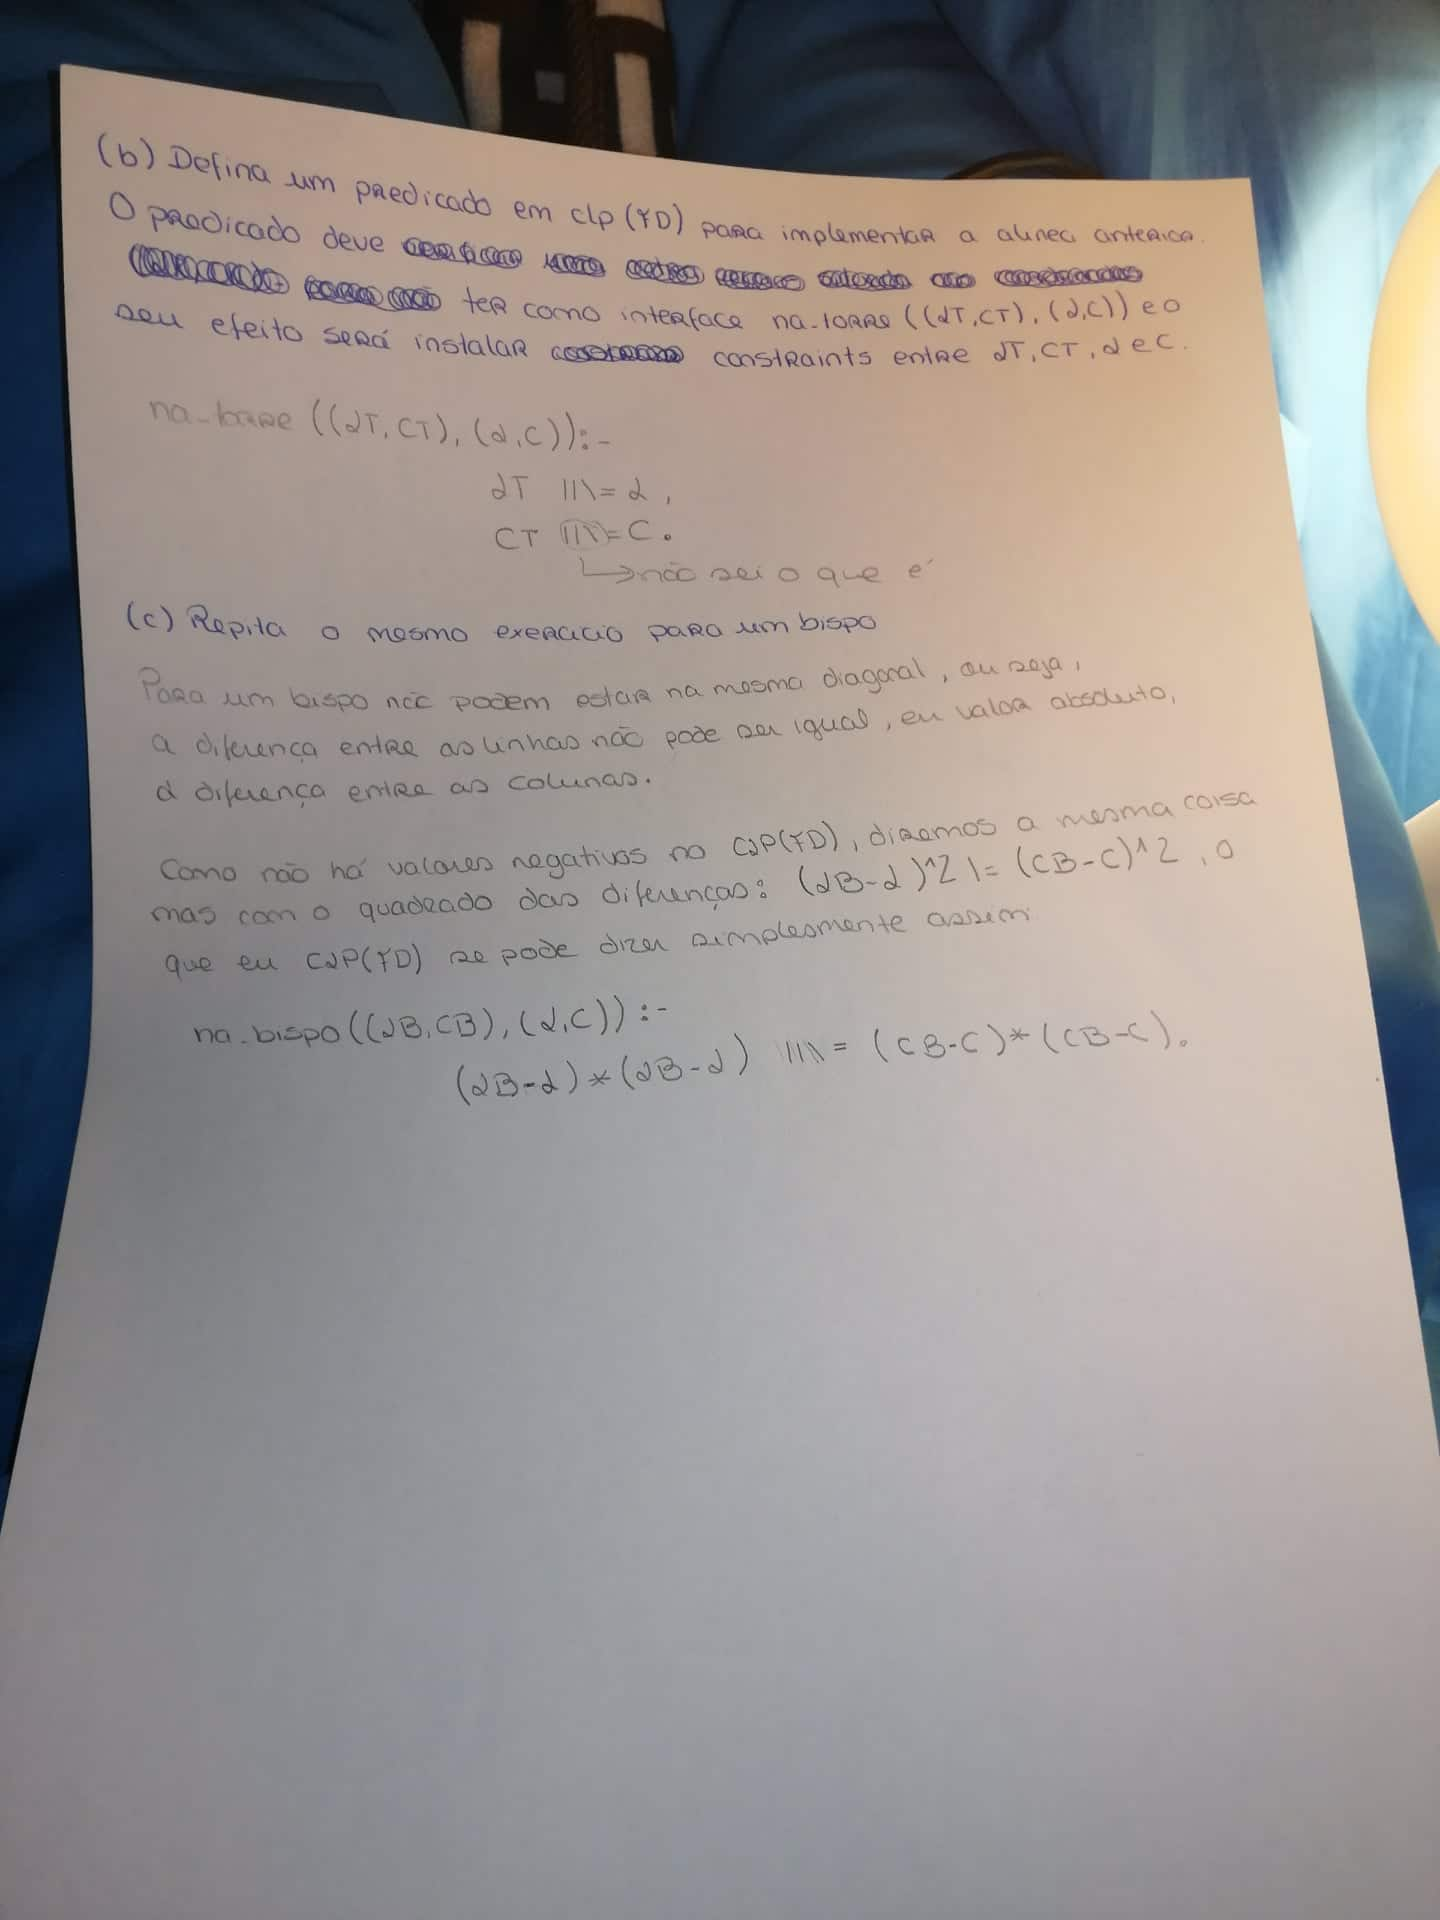 (b) Defina um predicado em clp(FD) para implementar a alínea anterior.
O predicado deve
ter como interface na_torre((LT,CT),(L,C)) e o
seu efeito será instalar constraints entre LT, CT, L e C.
na_torre((LT,CT),(L,C)):-
LT ||\= L,
CT ||\= C.
↳ não sei o que é
(c) Repita o mesmo exercício para um bispo
Para um bispo não podem estar na mesma diagonal, ou seja,
a diferença entre as linhas não pode ser igual, em valor absoluto,
à diferença entre as colunas.
Como não há valores negativos no CLP(FD), diremos a mesma coisa
mas com o quadrado das diferenças: (LB-L)^2 \= (CB-C)^2, o
que em CLP(FD) se pode dizer simplesmente assim
na_bispo((LB,CB),(L,C)):-
(LB-L)*(LB-L) ||\= (CB-C)*(CB-C).